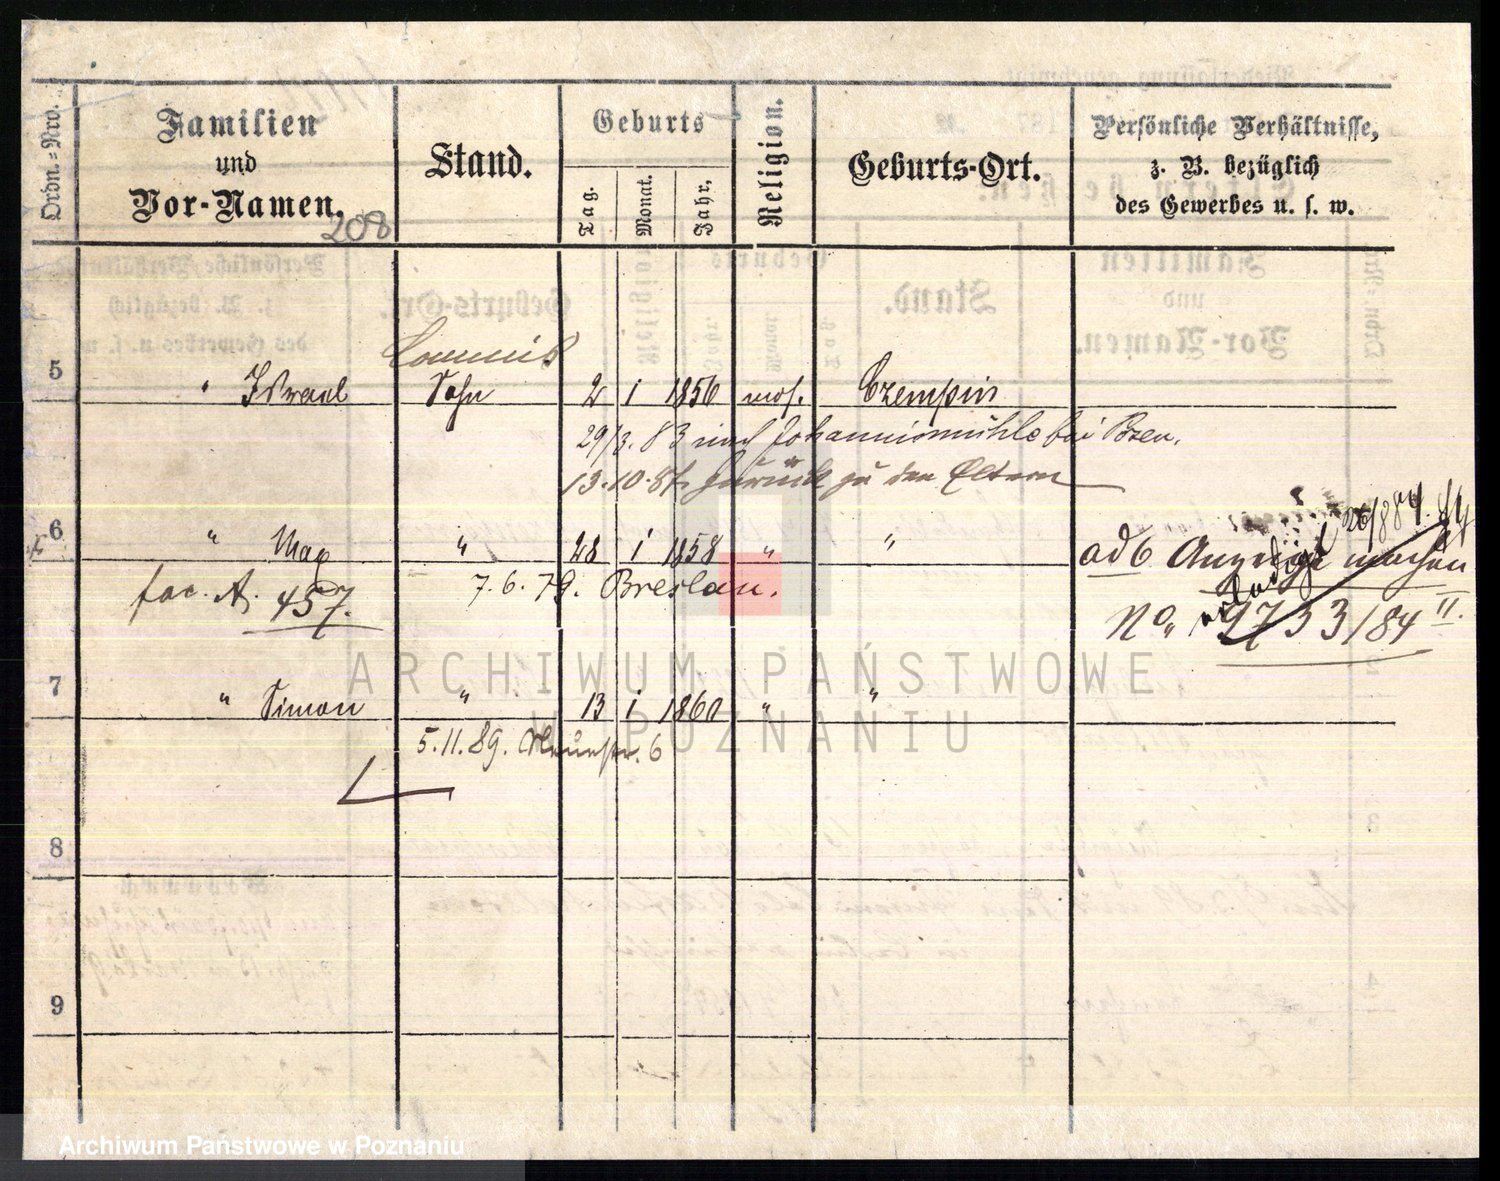 Ordn.-Nro.
Familien
und
Vor-Namen.
208
Stand.
Geburts
Tag.
Monat.
Jahr.
Religion.
Geburts-Ort.
Persönliche Verhältnisse,
z. B. bezüglich
des Gewerbes u. s. w.
Commis
5 " Israel Sohn 2 1 1856 mos. Czempin
29/3. 83 nach Johannismühle bei Posen.
13.10.87 zurück zu den Eltern
6 " Max " 28 1 1858 " "
26/8 84.
ad 6 Anzeige machen
fac. A. 457.
7.6.79. Breslau.
erledigt
No. 2733/84 II.
7 " Simon " 13 1 1860 " "
5.11.89. 6
8
9
ARCHIWUM PAŃSTWOWE
W POZNANIU
Archiwum Państwowe w Poznaniu